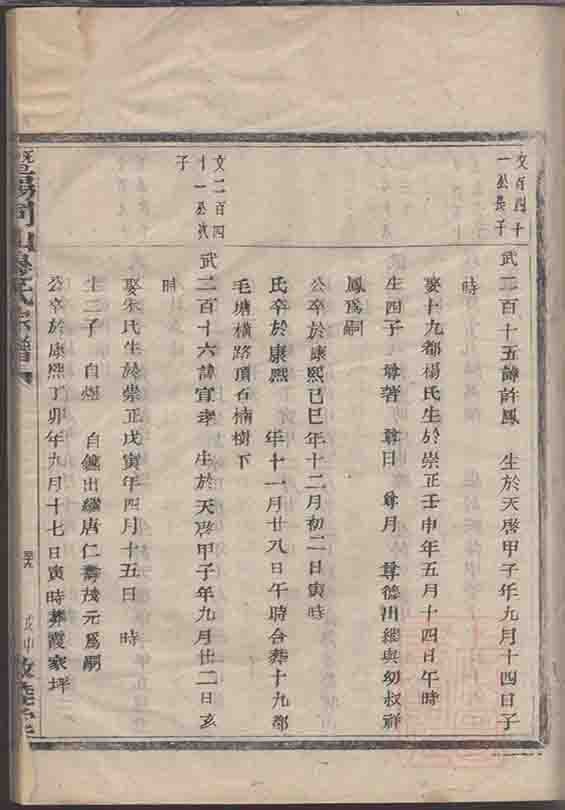 文百四十
一公長子
武二百十五諱許鳳 生於天啓甲子年九月十四日子
時
娶十九都楊氏生於崇正壬申年五月十四日午時
生四子 尊著 尊日 尊月 尊德出繼與幼叔祥
鳳爲嗣
公卒於康熙己巳年十二月初二日寅時
氏卒於康熙 年十一月廿八日午時合葬十九都
毛塘橫路頂石楠樹下
文二百四
十一公次
子
武二百十六諱宜孝 生於天啓甲子年九月廿二日亥
時
娶朱氏生於崇正戊寅年四月十五日 時
生二子 自煜 自 出繼唐仁壽茂元爲嗣
公卒於康熙丁卯年九月十七日寅時葬霞家坪
暨陽同山 氏宗譜
戊申